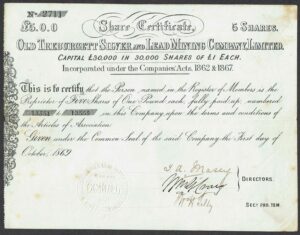 No. 2711
£5.0.0 Share Certificate, 5 SHARES.
OLD TREBURGETT SILVER AND LEAD MINING COMPANY, LIMITED.
CAPITAL £30,000 IN 30,000 SHARES OF £1 EACH.
Incorporated under the Companies' Acts. 1862 & 1867.
This is to certify that the Person named in the Register of Members is the
Proprietor of Five Shares of One Pound each, fully paid up, numbered
13551 to 13555 in this Company, upon the terms and conditions
of the Articles of Association
Given under the Common Seal of the said Company the First day of
October, 1869
DIRECTORS.
SEC? PRO. TEM.